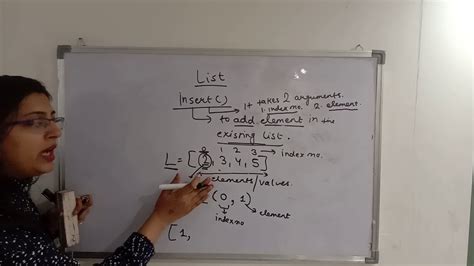 List
Insert() It takes 2 arguments.
1. index no. 2. element.
to add element in the
existing list.
0 1 2 3 → index no.
L = [2, 3, 4, 5]
elements/values.
(0, 1)
element
index no
[1,